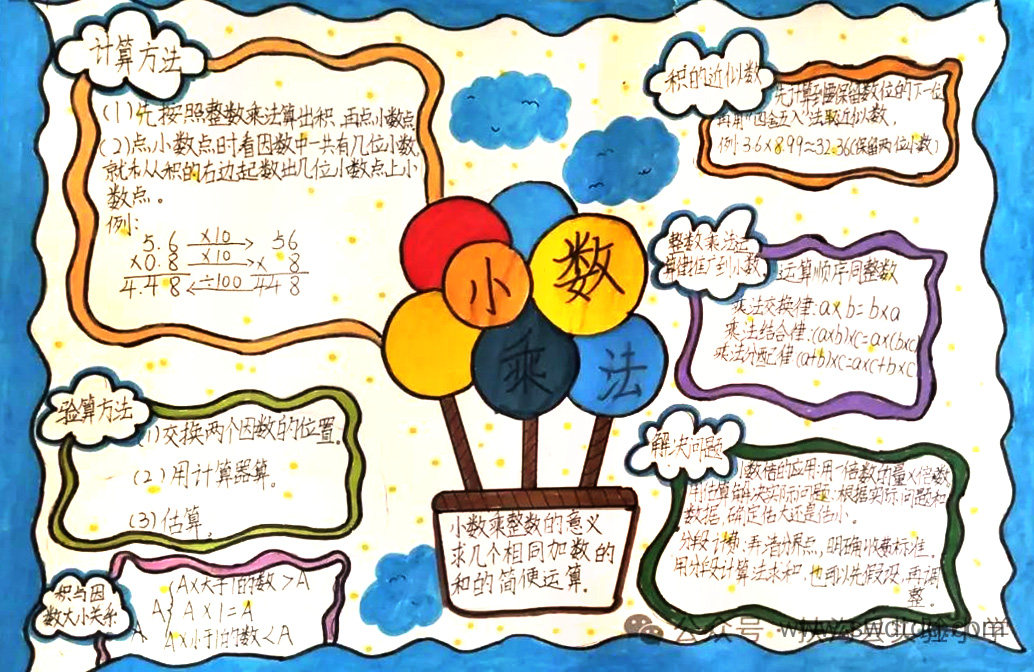 计算方法
(1)先按照整数乘法算出积,再点小数点
(2)点小数点时看因数中一共有几位小数,
就从积的右边起数出几位小数点上小
数点。
例:
5.6 ×10 56
×0.8 ×10 × 8
4.48 ÷100 448
验算方法
(1)交换两个因数的位置.
(2)用计算器算。
(3)估算。
积与因
数大小关系
A×大于1的数>A
A{ A×1=A
A×小于1的数<A
小数
乘法
小数乘整数的意义
求几个相同加数的
和的简便运算.
积的近似数
先计算到要保留数位的下一位
再用"四舍五入"法取近似数.
例:3.6×8.99≈32.36(保留两位小数)
整数乘法运
算律推广到小数
运算顺序同整数
乘法交换律:a×b=b×a
乘法结合律:(a×b)×c=a×(b×c)
乘法分配律(a+b)×c=a×c+b×c
解决问题
小数倍的应用:用一倍数的量×倍数
用估算解决实际问题:根据实际问题和
数据,确定估大还是估小。
分段计费:弄清分界点,明确收费标准.
用分段计算法求和,也可以先假设,再调
整。
公众号